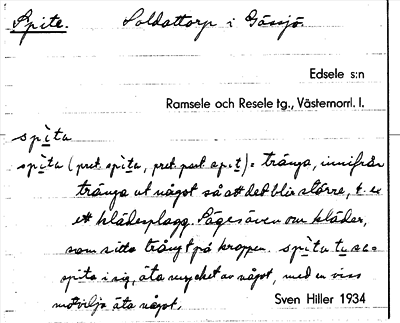 Spite. Soldattorp i Gåssjö.
Edsele s:n
Ramsele och Resele tg., Västernorrl. l.
spìta
spìta (pret. spìta, pret. part. spìt) = tränga, inifrån
tränga ut något så att det blir större, t. ex
ett klädesplagg. Säges även om kläder,
som sitta trångt på kroppen. spìta
spita i sig, äta mycket av något, med en viss
motvilja äta något.
Sven Hiller 1934